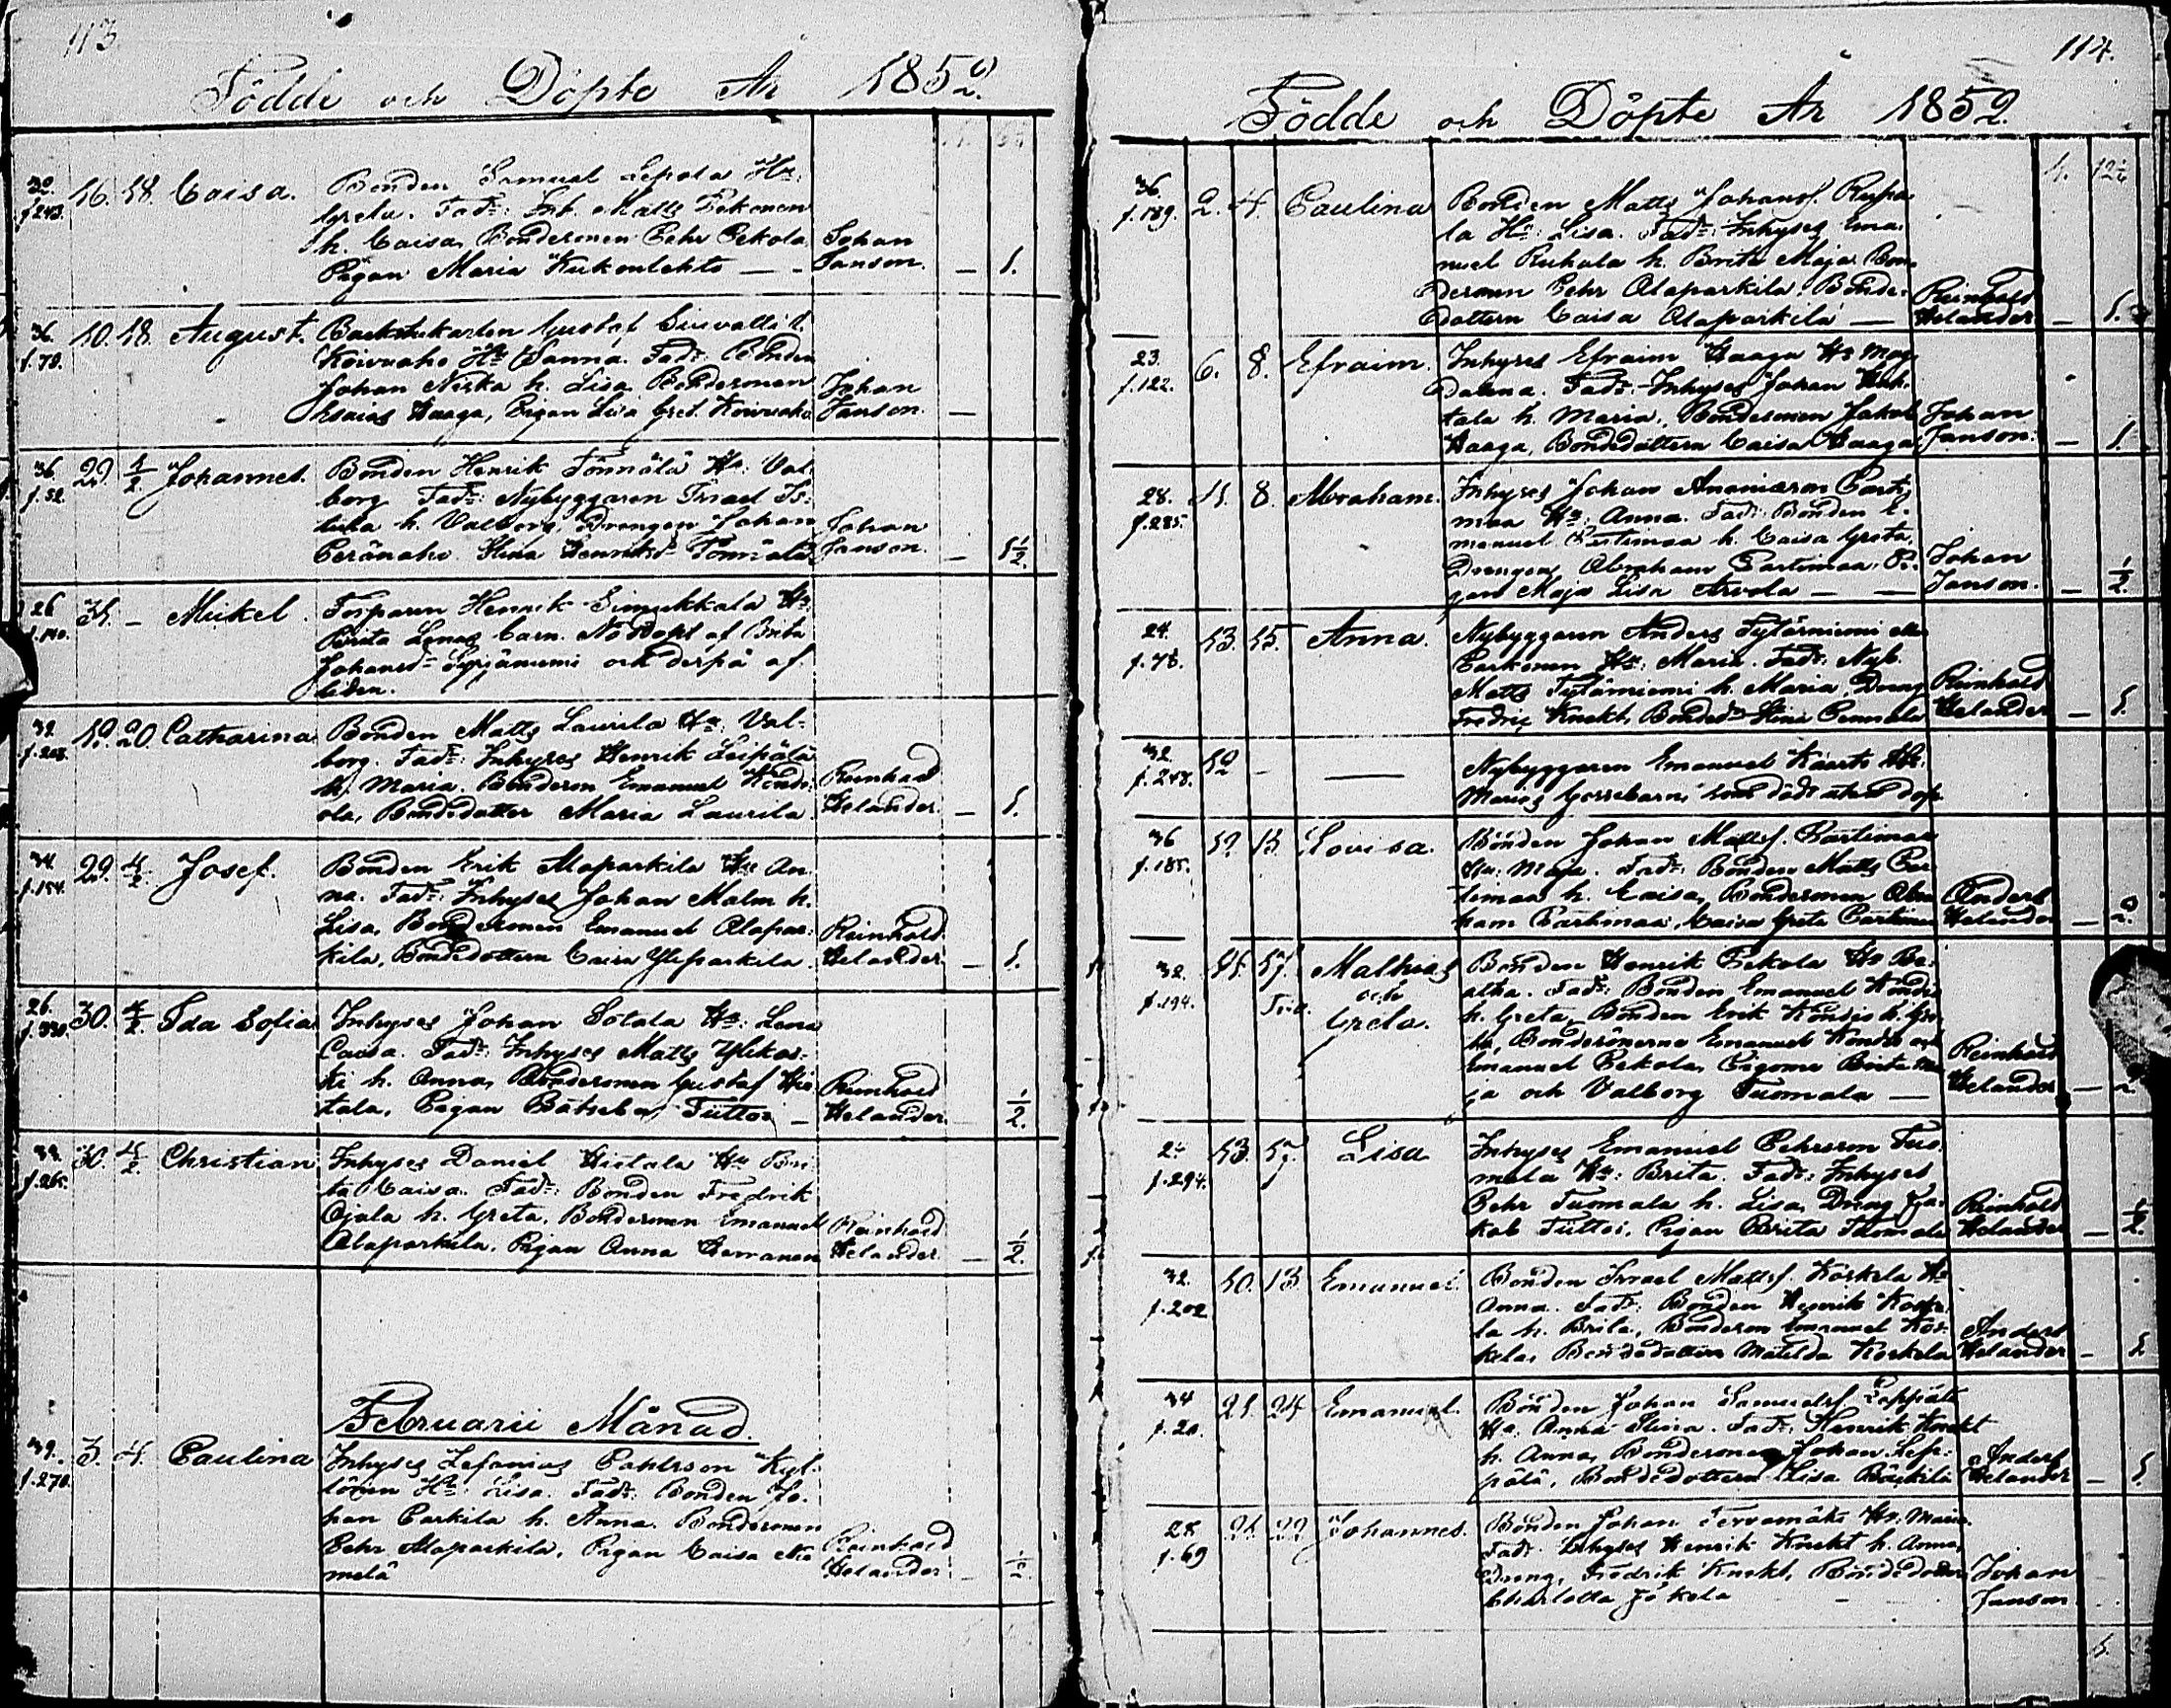 113
Födde och Döpte År 1852.
32. f.243. 16. 18. Caisa. Bonden Samuel Lepola Hu:
Greta. Fadd: Inh. Matts Pekonen
h. Caisa, Bondesonen Pehr Pekola Johan
Pigan Maria Kukonlehto — Janson. — 1.
36. f.78. 10. 18. August. Backstukarlen Gustaf
Koivuaho Hu Sanna. Fadd: Bonden
Johan Niska h. Lisa, Bondesonen Johan
Esaias Haaga, Pigan Lisa Gret. Koivuaho Janson. —
36. f.52. 29. 1/2. Johannes. Bonden Henrik Tönnälä Hu: Val-
borg. Fadd: Nybyggaren Israel
h. Valborg, Drängen Johan Johan
Peränaho. Stina Henriksd: Tönnälä Janson. — 1 1/2.
26 f.140. 31. — Mickel. Torparen Henrik Simukkala Hu
Brita Lenas barn. Nöddöpt af Brita
Johansd: Syrjäniemi och derpå af-
liden.
32. f.208. 19. 20. Catharina Bonden Matts Laurila Hu: Val-
borg. Fadd: Inhyses Henrik Leipälä
h. Maria. Bondeson Emanuel Reinhold
ola, Bondedotter Maria Laurila Helander. — 1.
34. f.154. 29. 4/2. Josef. Bonden Erik Alaparkila Hu: An-
na. Fadd: Inhyses Johan Malm h.
Lisa, Bondesonen Emanuel Alapar- Reinhold
kila, Bondedottern Caisa Yliparkila. Helander — 1.
26. f.330. 30. 4/2. Ida Sofia Inhyses Johan Sotala Hu: Lena
Caisa. Fadd: Inhyses Matts Ylikos-
ki h. Anna, Bondesonen Gustaf Hie- Reinhold
tala, Pigan Batseba Tuttoi — Helander. 1/2.
f.265. 30. 4/2. Christian Inhyses Daniel Hietala Hu Bri-
ta Caisa. Fadd: Bonden Fredrik
Ojala h. Greta, Bondesonen Emanuel Reinhold
Alaparkila, Pigan Anna Herranen Helander. — 1/2.
Februarii Månad.
39. f.270. 3. 4. Paulina Inhyses Zefanias Pahlrson Kyl-
lönen Hu: Lisa. Fadd: Bonden Jo-
han Parkila h. Anna. Bondesonen
Pehr Alaparkila, Pigan Caisa Nie- Reinhold
melä Helander — 1/2.
114.
Födde och Döpte År 1852.
36. f.189. 2. 4. Paulina Bonden Matts Johanss. Ruha-
la Hu: Lisa. Fadd: Inhyses Ema-
nuel Ruhala h. Brita Maja. Bon-
desonen Pehr Alaparkila, Bonde- Reinhold
dottern Caisa Alaparkila — Helander — 1.
23. f.122. 6. 8. Efraim. Inhyses Efraim Haaga Hu Mag-
dalena. Fadd: Inhyses Johan Huh-
tala h. Maria, Bondesonen Jakob Johan
Haaga, Bondedottern Caisa Haaga Janson. — 1.
28. f.285. 8. Abraham. Inhyses Johan Ananiæson Parti-
maa Hu: Anna. Fadd: Bonden E-
manuel Partimaa h. Caisa Greta,
Drängen Abraham Partimaa, Pi- Johan
gan Maja Lisa Arvola — — Janson. — 1/2.
24. f.78. 13. 15. Anna. Nybyggaren Anders Tytärniemi eller
Parkonen Hu: Maria. Fadd: Nyb.
Matts Tytärniemi h. Maria, Dräng Reinhold
Fredric Knekt, Bonded: Stina Pennala Helander — 1.
32. f.248. 12 — — Nybyggaren Emanuel Kaarto Hu:
Marias gossebarn, som död utan dop
36 f.185. 12. 13. Lovisa. Bonden Johan Mattss. Partimaa
Hu: Maja. Fadd: Bonden Matts Par-
timaa h. Caisa, Bondesonen Abra- Anders
ham Partimaa, Caisa Greta Partimaa Helander — 2.
32. f.194. 17. Mathias och Greta. Bonden Henrik Pekola Hu Be-
atha. Fadd: Bonden Emanuel Kondio
h. Greta, Bonden Erik Kondio h. Gre-
ta, Bondesönerna Emanuel Kondio och Reinhold
Emanuel Pekola, Pigorna Brita Ma- Helander —
ja och Valborg Tuomala —
f.294. 13. 17. Lisa Inhyses Emanuel Pehrsson Tuo-
mala Hu: Brita. Fadd: Inhyses
Pehr Tuomala h. Lisa, Dräng Ja- Reinhold
kob Tuttoi, Pigan Brita Tuomala Helander — 1/2.
32. f.202 10. 13 Emanuel. Bonden Israel Mattss. Koskela Hu
Anna. Fadd: Bonden Henrik Koske-
la h. Brita, Bondeson Emanuel Kos- Anders
kela, Bondedottern Matilda Koskela Helander — 1
34 f.20. 21. 24 Emanuel. Bonden Johan Samuelss. Leppälä
Hu: Anna Stina. Fadd: Henrik Knekt
h. Anna, Bondesonen Johan Lep- Anders
pälä, Bondedottern Lisa Helander — 1
28. f.69 21. 22 Johannes. Bonden Johan Tervomäki Hu. Maria.
Fadd: Inhyses Henrik Knekt h. Anna,
Dräng, Fredrik Knekt, Bondedotter Johan
Charlotta Jokela Janson